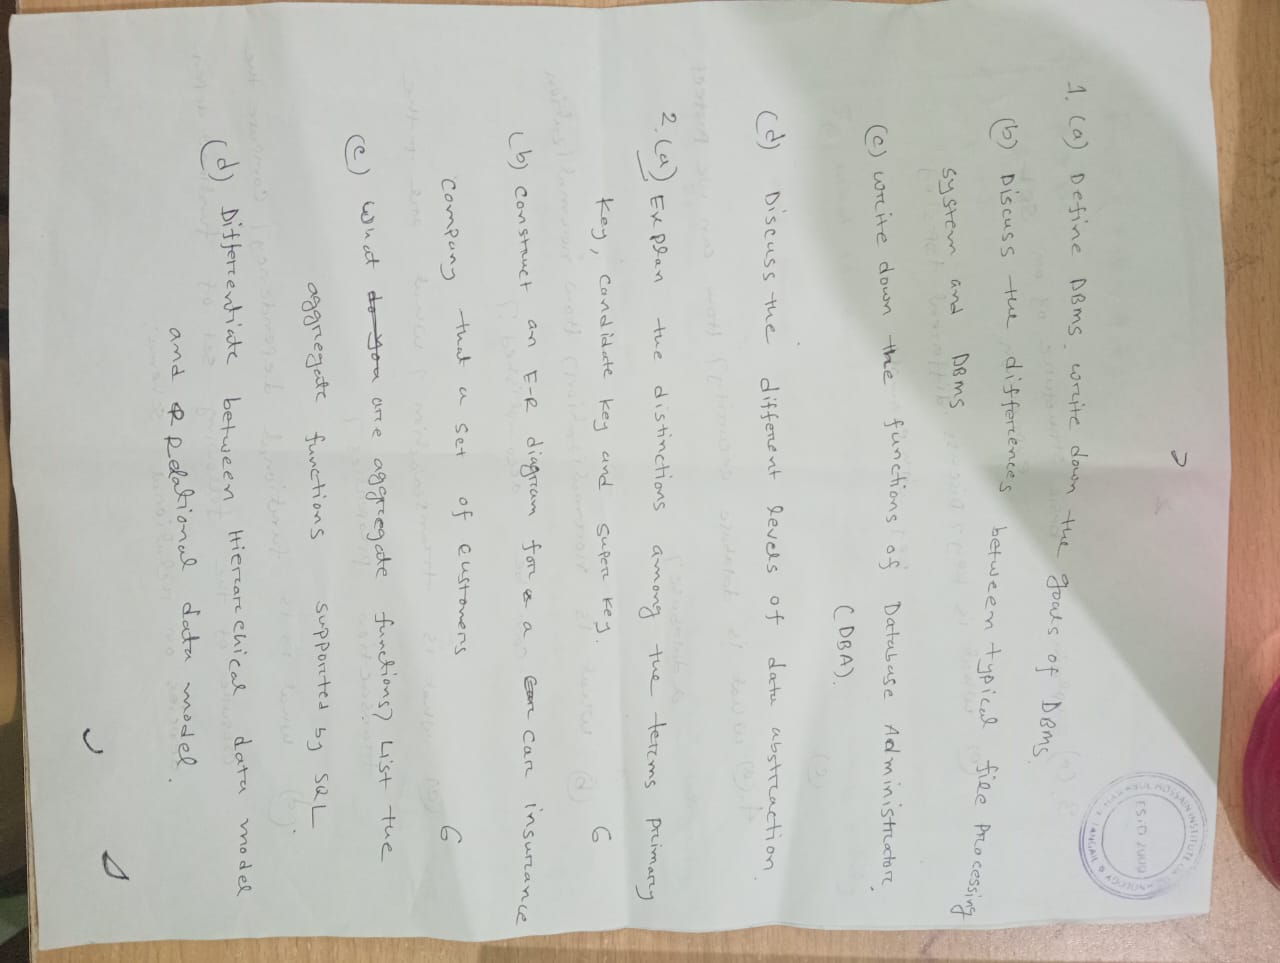 1. (a) Define DBMS. write down the goals of DBMS.
(b) Discuss the differences between typical file processing
system and DBMS
(c) write down the functions of Database Administrator.
(DBA).
(d) Discuss the different levels of data abstraction.
2. (a) Explan the distinctions among the terms primary
key, candidate key and super key. 6
(b) construct an E-R diagram for a car insurance
company that a set of customers 6
(c) what are aggregate functions? List the
aggregate functions supported by SQL.
(d) Differentiate between Hierarchical data model
and Relational data model.
HOSSAIN INSTITUTE
TANGAIL